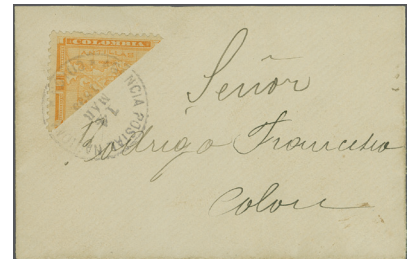 COLOMBIA
NCIA POSTAL NA
1
MAR
Señor
Rodrigo Francisco
Colon